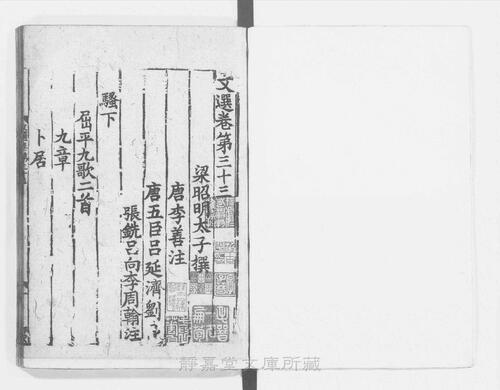 文選卷第三十三
梁昭明太子撰
唐李善注
唐五臣吕延濟劉
張銑吕向李周翰注
騷下
屈平九歌二首
九章
卜居
靜嘉堂文庫所藏